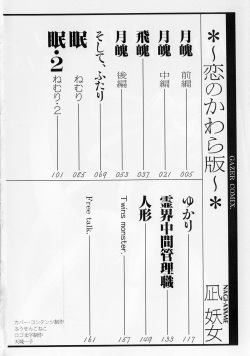 GAZER COMIX.
*～恋のかわら版～*
NAGI-AYAME
凪 妖女
月魄 前編 005
月魄 中編 021
飛魄 037
月魄 後編 053
そして、ふたり 069
眠 ねむり 085
眠・2 ねむり・2 101
ゆかり 117
霊界中間管理職 133
人形 149
Twins monster. 157
Free talk. 161
カバー・コンテンツ制作
ロゴ文字制作